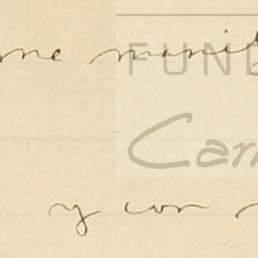 me manif
FUND
Car
y con